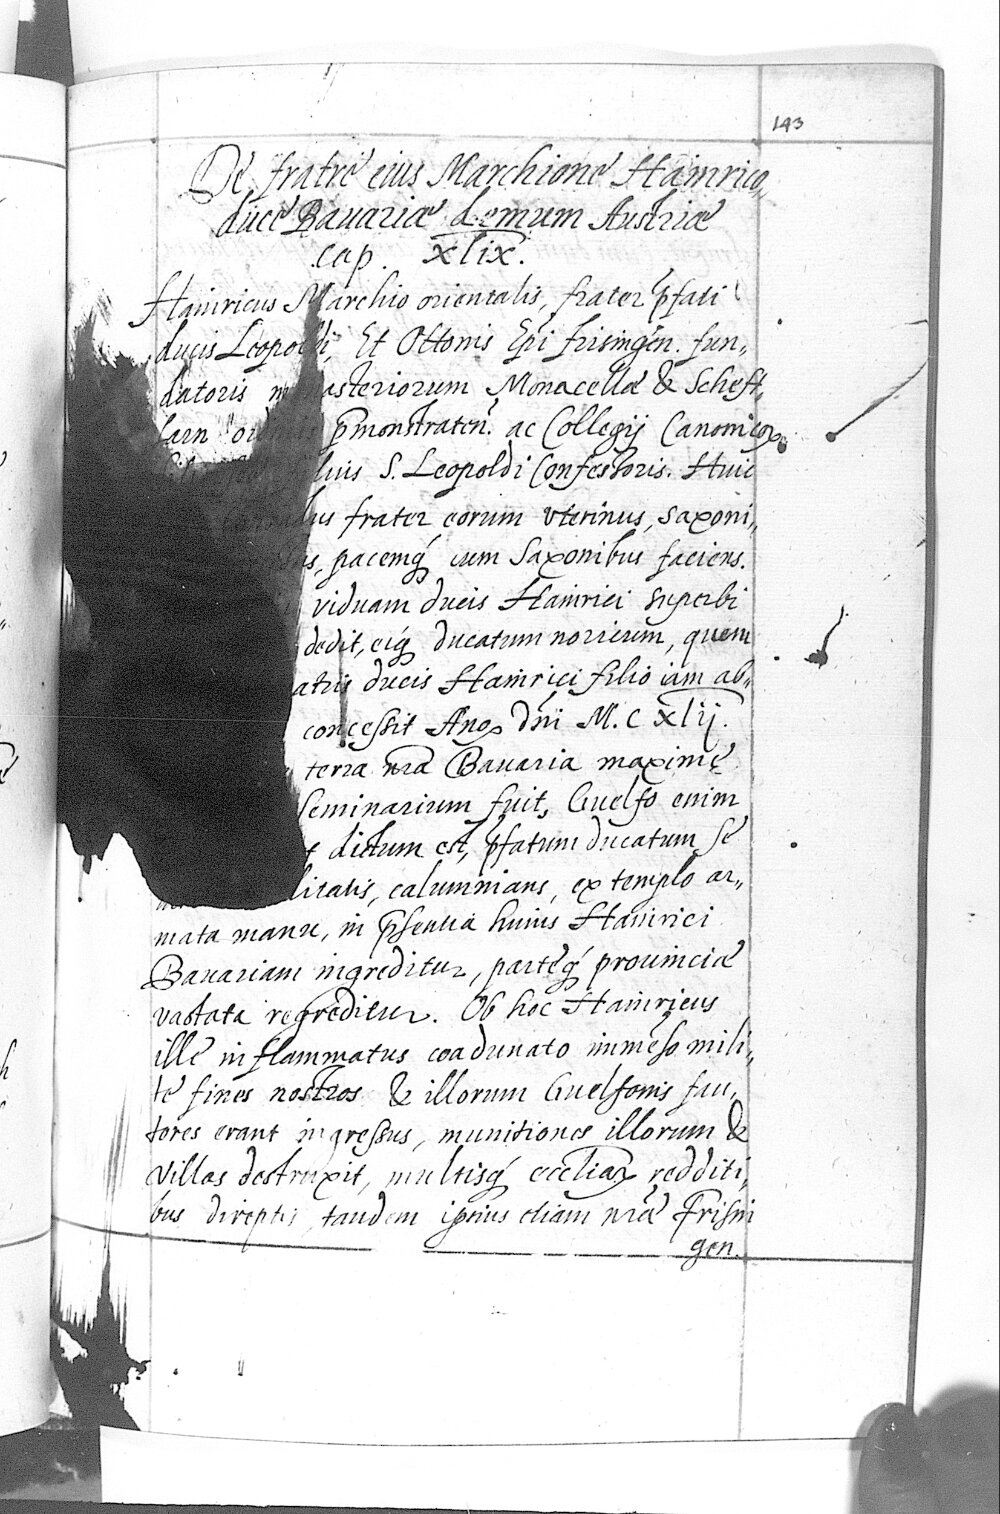 143
De fratre eius Marchione Hainrico,
duce Bauariæ demum Austriæ
cap. xlix.
Hainricus Marchio orientalis, frater pfati
ducis Leopoldi, Et Ottonis Epi frisingen. fun„
datoris monasteriorum Monacellæ & Scheft„
larn ordinis pmonstraten. ac Collegij Canonicor
filius S. Leopoldi Confessoris. Huic
Conradus frater eorum vterinus, saxoni„
pacemq́ cum Saxonibus faciens.
viduam ducis Hainrici superbi
dedit, eiq́ ducatum noricum, quem
ducis Hainrici filio iam ab„
concessit Ano dni M. C xlij.
terra nra Bauaria maxime
seminarium fuit, Guelfo enim
dictum est, pfatum ducatum se
calumnians, extemplo ar„
mata manu, in psentia huius Hainrici
Bauariam ingreditur, parteq́ prouinciæ
vastata regreditur. Ob hoc Hainricus
ille inflammatus coadunato immeso mili„
te fines nostros & illorum Guelfonis fau„
tores erant ingressus, munitiones illorum &
villas destruxit, multisq́ eccliar redditi„
bus direptis, tandem ipsius etiam nræ Frisin
gen.